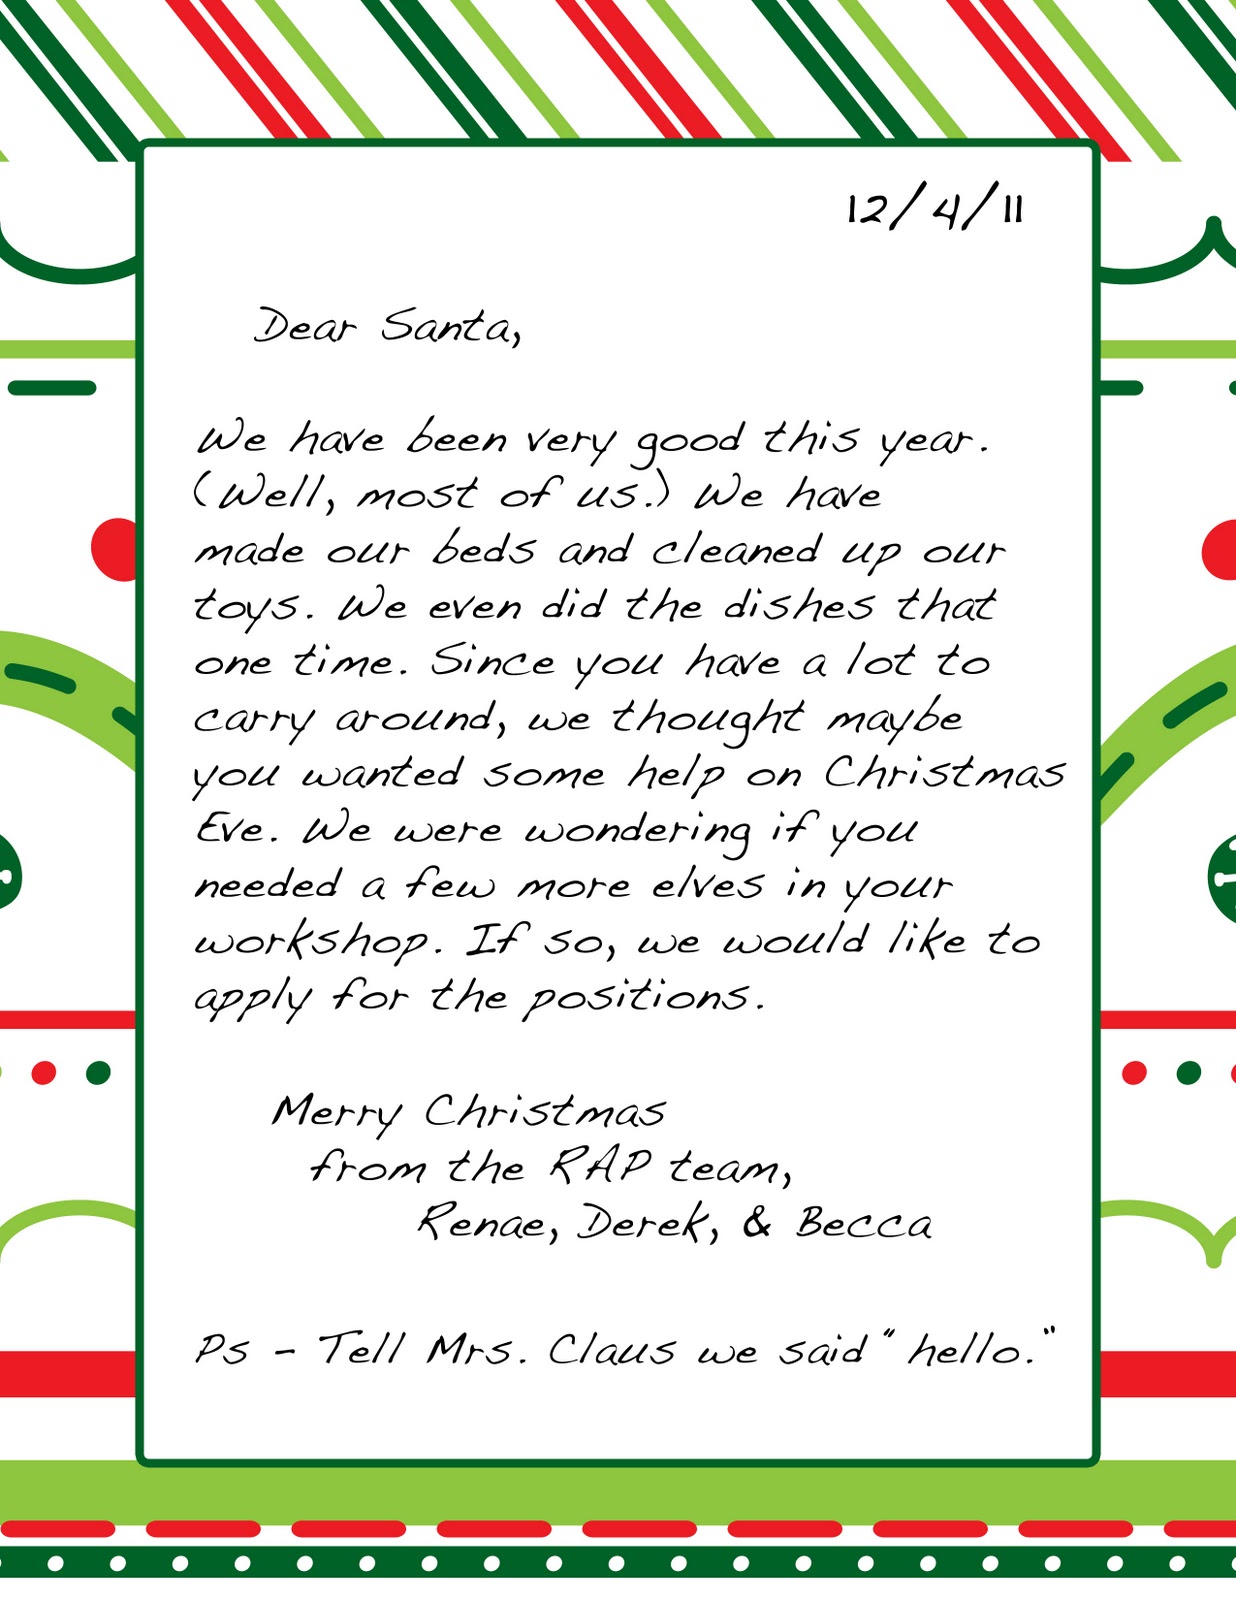 12/4/11
Dear Santa,
We have been very good this year.
(Well, most of us.) We have
made our beds and cleaned up our
toys. We even did the dishes that
one time. Since you have a lot to
carry around, we thought maybe
you wanted some help on Christmas
Eve. We were wondering if you
needed a few more elves in your
workshop. If so, we would like to
apply for the positions.
Merry Christmas
from the RAP team,
Renae, Derek, & Becca
Ps - Tell Mrs. Claus we said "hello."